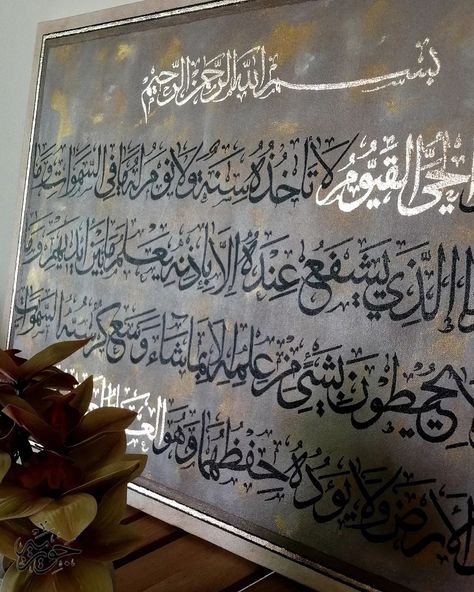 بسم الله الرحمن الرحيم
الحَيُّ القَيُّومُ لَا تَأْخُذُهُ سِنَةٌ وَلَا نَوْمٌ لَهُ مَا فِي السَّمَوَاتِ وَمَا
الَّذِي يَشْفَعُ عِنْدَهُ إِلَّا بِإِذْنِهِ يَعْلَمُ مَا بَيْنَ أَيْدِيهِمْ وَمَا
يُحِيطُونَ بِشَيْءٍ مِنْ عِلْمِهِ إِلَّا بِمَا شَاءَ وَسِعَ كُرْسِيُّهُ السَّمَوَاتِ
الأَرْضَ وَلَا يَؤُدُهُ حِفْظُهُمَا وَهُوَ